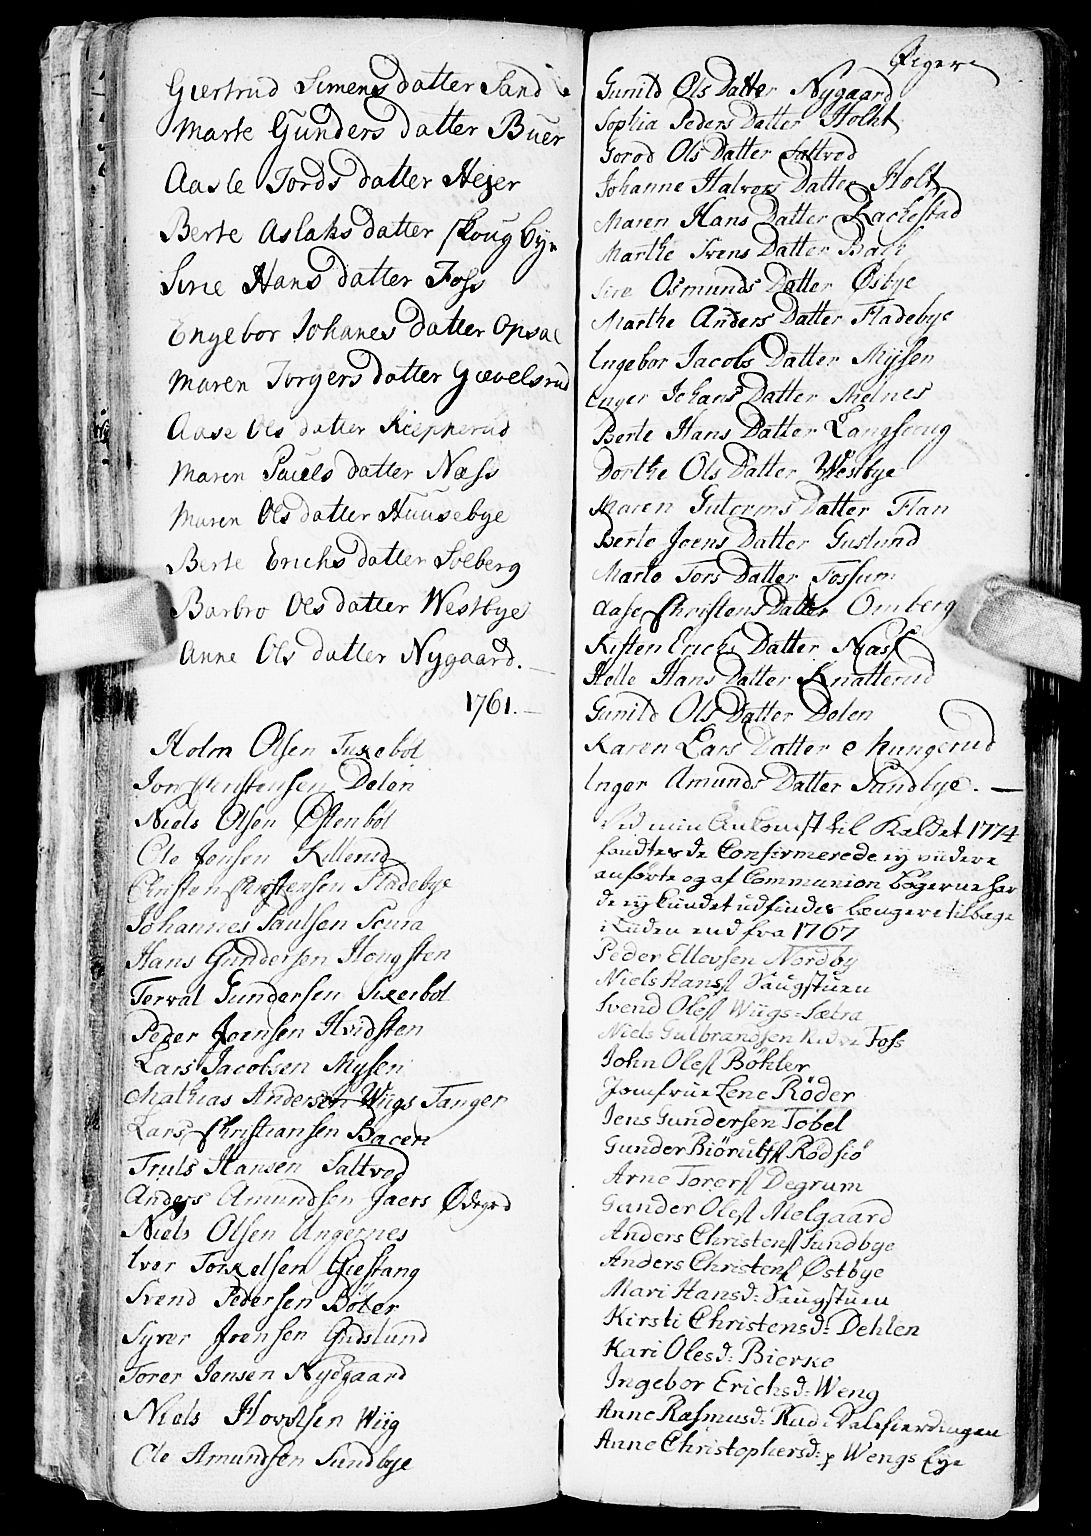 Giertrud Simens datter Sand
Marte Gunders datter Buer
Aasle Tords datter Hejer
Berte Aslaks datter Skougbye
Sirie Hans datter Foss
Engebor Johanes datter Opsal
Maren Torgers datter Gievelsrud
Aase Ols datter Kiepperud
Maren Pauels datter Næss
Maren Ols datter Huusebye
Berte Erichs datter Solberg
Barbro Ols datter Westbye
Anne Ols datter Nygaard.
1761.
Holm Olsen Tuxebøl
Jon Stenstensen Dølen
Niels Olsen Østenbøl
Ole Jensen Killerud
Christen Christensen Fladebye
Johannes Paulsen Scura
Hans Gundersen Hengsten
Torval Gundersen Sixerbøl
Peder Joensen Hvidsten
Lars Jacobsen Mysen
Mathias Andersen Wiigs Tanger
Lars Christiansen Bacen
Truls Hansen Saltvod
Anders Amundsen Jaers Ødegrd
Niels Olsen Ungernes
Iver Torkelsen Giestang
Svend Pedersen Bøler
Syver Joensen Gudslund
Torer Jensen Nyegaard
Niels Hovelsen Wiig
Ole Amundsen Sundbye
Piger
Gunild Ols Datter Nygaard
Sophia Peders Datter Holht
Gorod Ols Datter Saltvod
Johanne Halvors Datter Holt
Maren Hans Datter Rackestad
Marthe Svens Datter Back
Sire Osmunds Datter Østbye
Marthe Anders Datter Fladebye
Ingebor Jacobs Datter Mysen
Inger Johans Datter Melnes
Berte Hans Datter Langseng
Dorthe Ols Datter Westbye
Maren Gutorms Datter Flan
Berte Joens Datter Guslund
Marte Tors Datter Fossum
Aase Christens Datter Omberg
Kisten Erichs Datter Næss
Helle Hans Datter Knatterud
Gunild Ols Datter Dølen
Karen Lars Datter Kungerud
Inger Amunds Datter Sundbye.
Ved min Ankomst til Kaldet 1774
fandtes de Confirmerede ey videre
anførte og af Communion Bøgerne har
de ey kundet udfindes længere tilbage
i tiden end fra 1767
Peder Ellevsen Nordby
Niels Hans. Haugstuen
Svend Oles. Wiigs-Sætra
Niels Gulbrandsen Foss
John Oles. Bøhler
Jomfrue Lene Røder
Jens Gundersen Tøbel
Gunder Biørnulfs. Rødsiø
Arne Torers. Degrum
Gunder Oles. Melgaard
Anders Christens. Sundbye
Anders Christens. Østbye
Mari Hansd: Haugstuen
Kirsti Christensd: Dehlen
Kari Olesd: Bierke
Ingebor Erichsd: Weng
Anne Rasmusd: Rud i Dalefierdingen
Anne Christophersd: p Wengs Eye